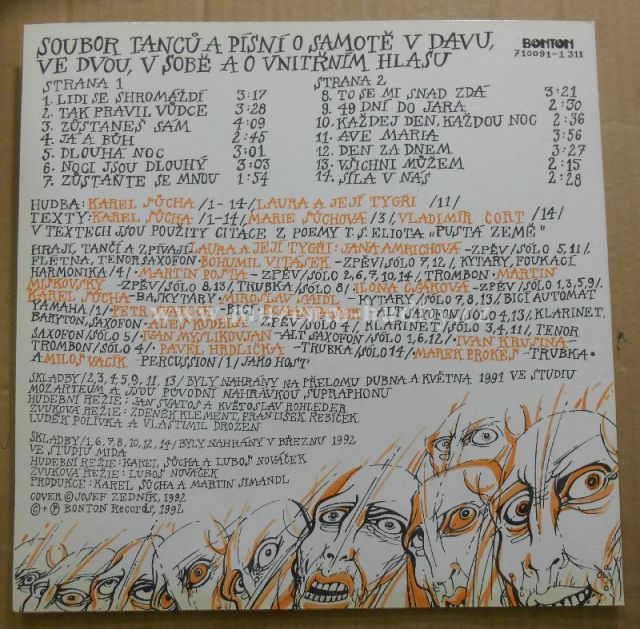 SOUBOR TANCŮ A PÍSNÍ O SAMOTĚ V DAVU,
VE DVOU, V SOBĚ A O VNITŘNÍM HLASU
BONTON
710091-1 311
STRANA 1
1. LIDI SE SHROMÁŽDÍ 3:17
2. TAK PRAVIL VŮDCE 3:28
3. ZŮSTANEŠ SÁM 4:09
4. JÁ A BŮH 2:45
5. DLOUHÁ NOC 3:01
6. NOCI JSOU DLOUHÝ 3:03
7. ZŮSTAŇTE SE MNOU 1:54
STRANA 2
8. TO SE MI SNAD ZDÁ 3:21
9. 49 DNÍ DO JARA 2:30
10. KAŽDEJ DEN, KAŽDOU NOC 2:36
11. AVE MARIA 3:56
12. DEN ZA DNEM 3:27
13. VŠICHNI MŮŽEM 2:15
14. SÍLA V NÁS 2:28
HUDBA: KAREL ŠŮCHA /1-14/, LAURA A JEJÍ TYGŘI /11/
TEXTY: KAREL ŠŮCHA /1-14/, MARIE ŠŮCHOVÁ /3/, VLADIMÍR ČORT /14/
V TEXTECH JSOU POUŽITY CITACE Z POEMY T. S. ELIOTA „PUSTÁ ZEMĚ"
HRAJÍ, TANČÍ A ZPÍVAJÍ LAURA A JEJÍ TYGŘI: JANA AMRICHOVÁ -ZPĚV /SÓLO 5, 11/,
FLÉTNA, TENORSAXOFON· BOHUMIL VITÁSEK -ZPĚV /SÓLO 7, 12/, KYTARY, FOUKACÍ
HARMONIKA /4/· MARTIN POŠTA -ZPĚV /SÓLO 2, 6, 7, 10, 14/, TROMBON· MARTIN
MIŠKOVSKÝ -ZPĚV /SÓLO 8, 13/, TRUBKA /SÓLO 8/· ILONA CSÁKOVÁ -ZPĚV /SÓLO 1, 3, 5, 9/·
KAREL ŠŮCHA -BASKYTARY· MIROSLAV ŠAJDL -KYTARY /SÓLO 7, 8, 13/, BICÍ AUTOMAT
YAMAHA /1/· PETR -BICÍ SAXOFON /SÓLO 4, 13/, KLARINET,
BARYTON, SAXOFON· ALEŠ -ZPĚV /SÓLO 4/, KLARINET /SÓLO 3, 4, 11/, TENOR
SAXOFON /SÓLO 5/· IVAN MYSLIKOVJAN -ALT SAXOFON /SÓLO 1, 6, 12/· IVAN KRUŠINA -
TROMBON /SÓLO 4/· PAVEL HRDLIČKA -TRUBKA /SÓLO 14/· MAREK PROKEŠ -TRUBKA·
A MILOŠ VACÍK -PERCUSSION /1/ JAKO HOST
SKLADBY /2, 3, 4, 5, 9, 11, 13/ BYLY NAHRÁNY NA PŘELOMU DUBNA A KVĚTNA 1991 VE STUDIU
MOZARTEUM A JSOU PŮVODNÍ NAHRÁVKOU SUPRAPHONU
HUDEBNÍ REŽIE: JAN SVATOŠ A KVĚTOSLAV ROHLEDER
ZVUKOVÁ REŽIE: ZDENĚK KLEMENT, FRANTIŠEK ŘEBÍČEK
LUDĚK POLÍVKA A VLASTIMIL DROZEN
SKLADBY /1, 6, 7, 8, 10, 12, 14/ BYLY NAHRÁNY V BŘEZNU 1992
VE STUDIU MIDA
HUDEBNÍ REŽIE: KAREL ŠŮCHA A LUBOŠ NOVÁČEK
ZVUKOVÁ REŽIE: LUBOŠ NOVÁČEK
PRODUKCE: KAREL ŠŮCHA A MARTIN ŠIMANDL
COVER © JOSEF ZEDNÍK, 1992
© + ℗ BONTON RECORDS, 1992